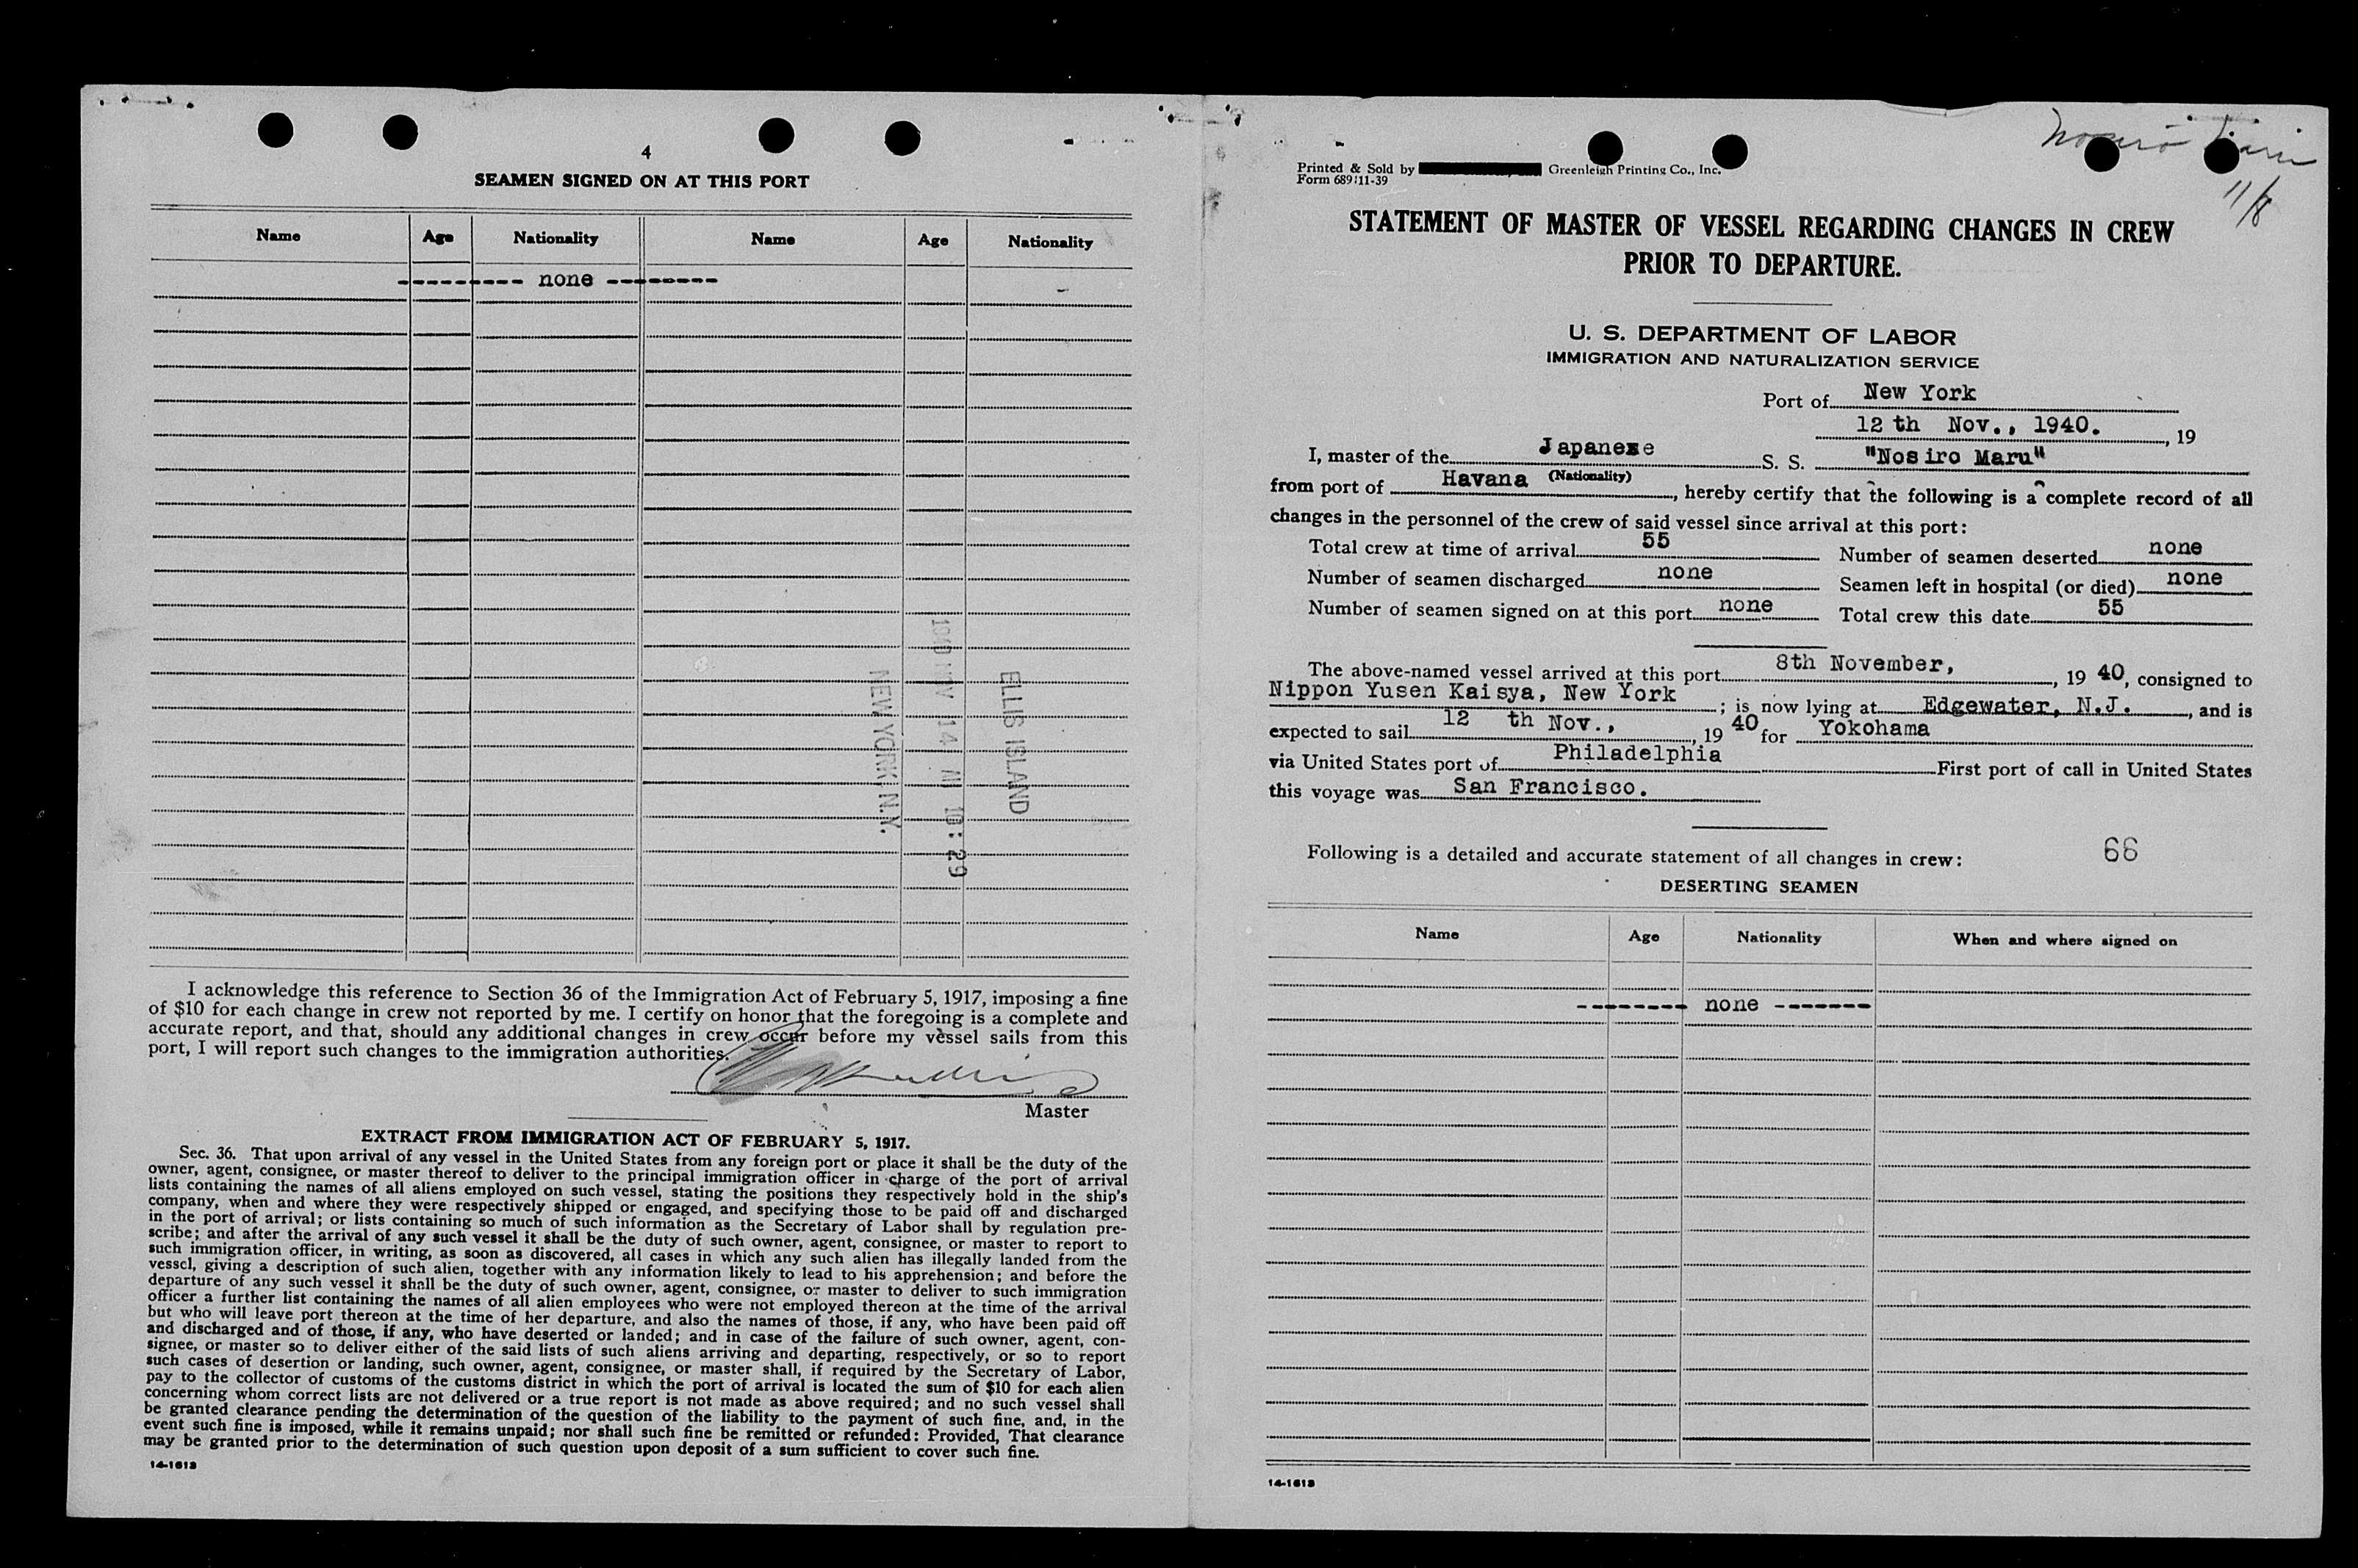 4
SEAMEN SIGNED ON AT THIS PORT
Name Age Nationality Name Age Nationality
--------- none --------
ELLIS ISLAND
NOV 14 10:29
NEW YORK N.Y.
I acknowledge this reference to Section 36 of the Immigration Act of February 5, 1917, imposing a fine
of $10 for each change in crew not reported by me. I certify on honor that the foregoing is a complete and
accurate report, and that, should any additional changes in crew occur before my vessel sails from this
port, I will report such changes to the immigration authorities.
Master
EXTRACT FROM IMMIGRATION ACT OF FEBRUARY 5, 1917.
Sec. 36. That upon arrival of any vessel in the United States from any foreign port or place it shall be the duty of the
owner, agent, consignee, or master thereof to deliver to the principal immigration officer in charge of the port of arrival
lists containing the names of all aliens employed on such vessel, stating the positions they respectively hold in the ship's
company, when and where they were respectively shipped or engaged, and specifying those to be paid off and discharged
in the port of arrival; or lists containing so much of such information as the Secretary of Labor shall by regulation pre-
scribe; and after the arrival of any such vessel it shall be the duty of such owner, agent, consignee, or master to report to
such immigration officer, in writing, as soon as discovered, all cases in which any such alien has illegally landed from the
vessel, giving a description of such alien, together with any information likely to lead to his apprehension; and before the
departure of any such vessel it shall be the duty of such owner, agent, consignee, or master to deliver to such immigration
officer a further list containing the names of all alien employees who were not employed thereon at the time of the arrival
but who will leave port thereon at the time of her departure, and also the names of those, if any, who have been paid off
and discharged and of those, if any, who have deserted or landed; and in case of the failure of such owner, agent, con-
signee, or master so to deliver either of the said lists of such aliens arriving and departing, respectively, or so to report
such cases of desertion or landing, such owner, agent, consignee, or master shall, if required by the Secretary of Labor,
pay to the collector of customs of the customs district in which the port of arrival is located the sum of $10 for each alien
concerning whom correct lists are not delivered or a true report is not made as above required; and no such vessel shall
be granted clearance pending the determination of the question of the liability to the payment of such fine, and, in the
event such fine is imposed, while it remains unpaid; nor shall such fine be remitted or refunded: Provided, That clearance
may be granted prior to the determination of such question upon deposit of a sum sufficient to cover such fine.
14-1613
Nosiro Maru
11/8
Printed & Sold by Greenleigh Printing Co., Inc.
Form 689:11-39
STATEMENT OF MASTER OF VESSEL REGARDING CHANGES IN CREW
PRIOR TO DEPARTURE.
U. S. DEPARTMENT OF LABOR
IMMIGRATION AND NATURALIZATION SERVICE
Port of New York
12 th Nov., 1940. , 19
I, master of the Japanese S. S. "Nosiro Maru"
(Nationality)
from port of Havana , hereby certify that the following is a complete record of all
changes in the personnel of the crew of said vessel since arrival at this port:
Total crew at time of arrival 55 Number of seamen deserted none
Number of seamen discharged none Seamen left in hospital (or died) none
Number of seamen signed on at this port none Total crew this date 55
The above-named vessel arrived at this port 8th November, , 19 40, consigned to
Nippon Yusen Kaisya, New York ; is now lying at Edgewater, N.J. , and is
expected to sail 12 th Nov., , 19 40 for Yokohama
via United States port of Philadelphia First port of call in United States
this voyage was San Francisco.
Following is a detailed and accurate statement of all changes in crew: 66
DESERTING SEAMEN
Name Age Nationality When and where signed on
-------- none -------
14-1613